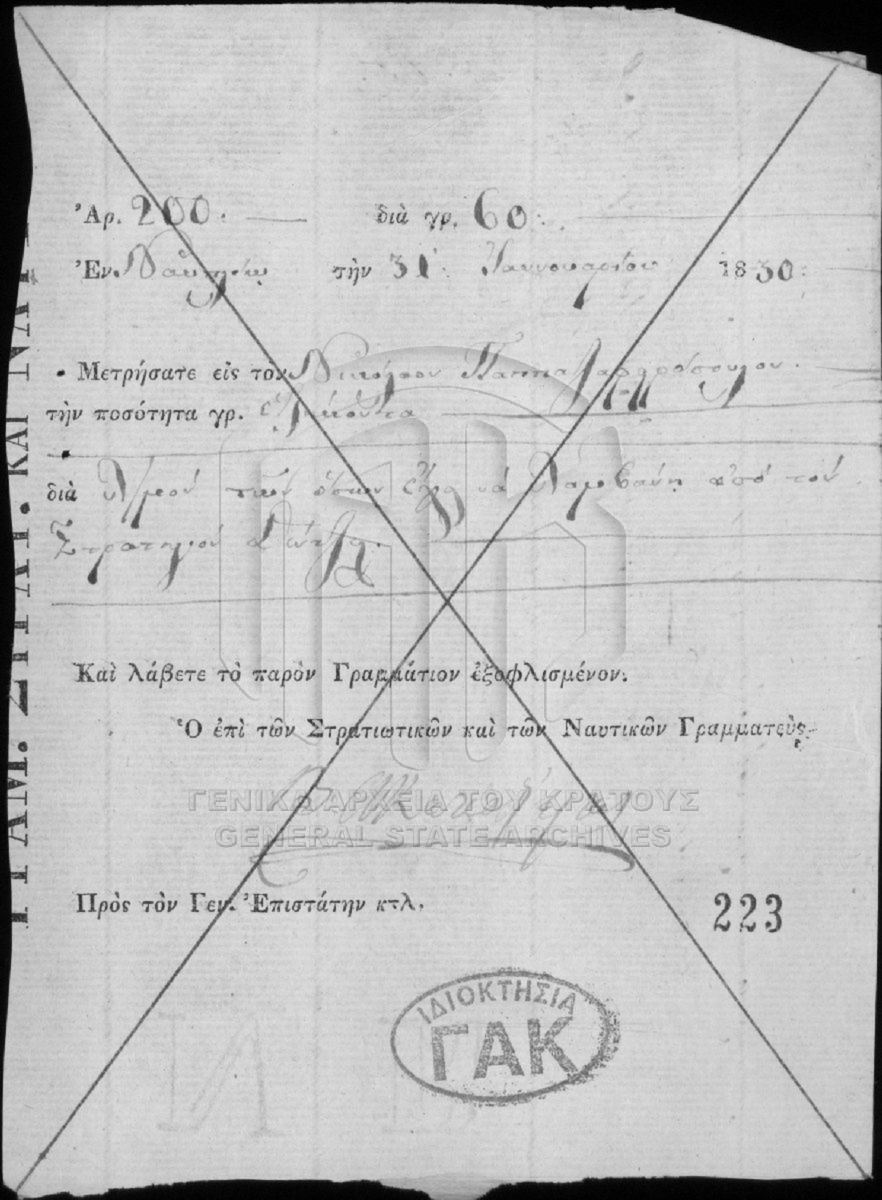 Ἀρ. 200. διὰ γρ. 60:
Ἐν Ναυπλίῳ τὴν 31 Ἰαννουαρίου 1830:
Μετρήσατε εἰς τον Νικόλαον Παππα
τὴν ποσότητα γρ. ἑξήκοντα
διὰ τῶν ὅσων ἔχει νὰ λαμβάνῃ ἀπὸ τὸν
Στρατηγὸν
Καὶ λάβετε τὸ παρὸν Γραμμάτιον ἐξοφλισμένον.
Ὁ ἐπὶ τῶν Στρατιωτικῶν καὶ τῶν Ναυτικῶν Γραμματεὺς
ΓΕΝΙΚΑ ΑΡΧΕΙΑ ΤΟΥ ΚΡΑΤΟΥΣ
GENERAL STATE ARCHIVES
Πρὸς τὸν Γεν. Ἐπιστάτην κτλ.
223
ΙΔΙΟΚΤΗΣΙΑ
ΓΑΚ